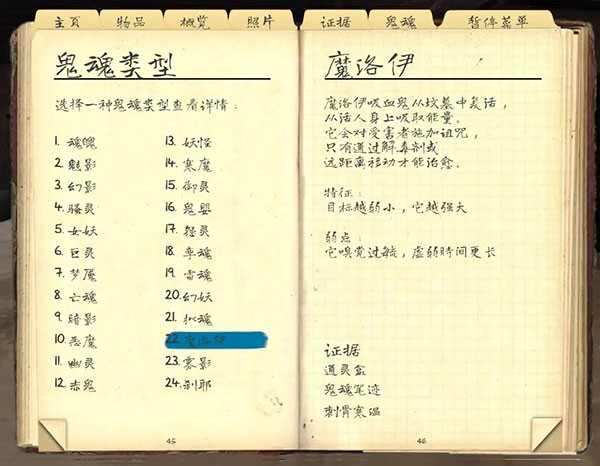 主页 物品 概览 照片 证据 鬼魂 暂停菜单
鬼魂类型
选择一种鬼魂类型查看详情：
1. 魂魄
2. 魅影
3. 幻影
4. 骚灵
5. 女妖
6. 巨灵
7. 梦魇
8. 亡魂
9. 暗影
10. 恶魔
11. 幽灵
12. 赤鬼
13. 妖怪
14. 寒魔
15. 御灵
16. 鬼婴
17. 怨灵
18. 孪魂
19. 雷魂
20. 幻妖
21. 拟魂
22. 魔洛伊
23. 雾影
24. 刹耶
45
魔洛伊
魔洛伊吸血鬼从坟墓中复活，
从活人身上吸取能量。
它会对受害者施加诅咒，
只有通过解毒剂或
远距离移动才能治愈。
特征：
目标越弱小，它越强大
弱点：
它嗅觉过敏，虚弱时间更长
证据
通灵盒
鬼魂笔迹
刺骨寒温
46